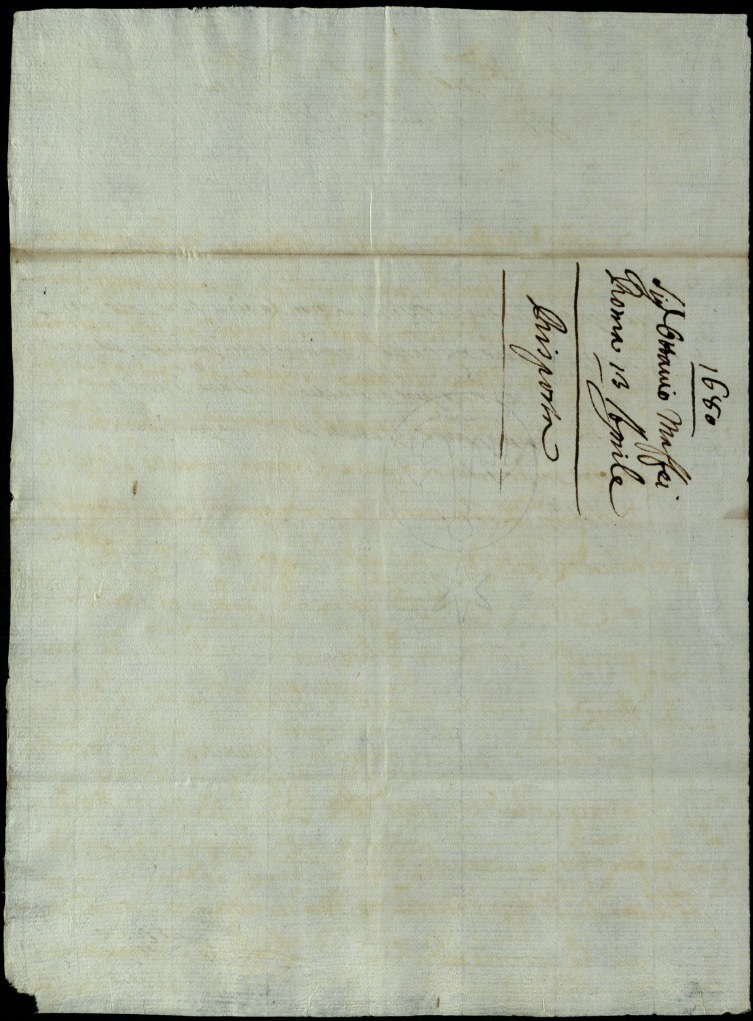 1680
Sig.r Ottavio Maffei
Roma 13 Aprile
Risposta